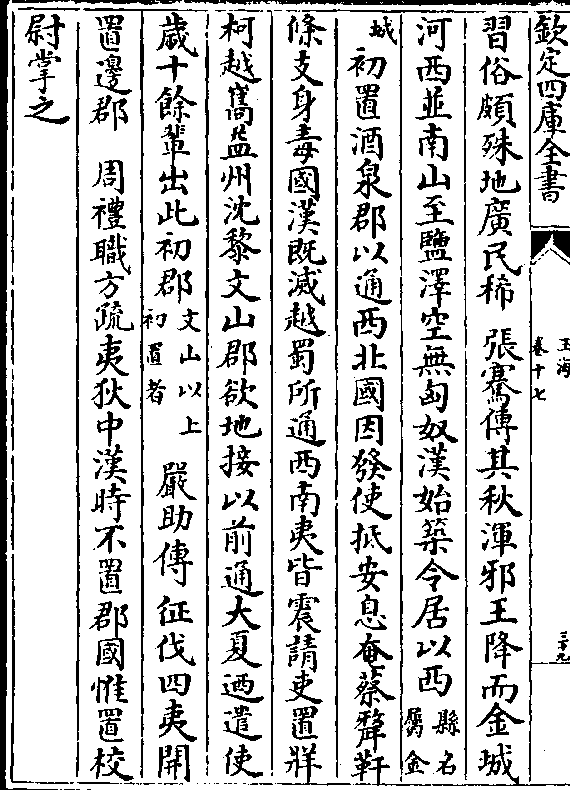 欽定四庫全書
玉海
卷十七
三十九
習俗頗殊地廣民稀 張騫傳其秋渾邪王降而金城
河西並南山至鹽澤空無匈奴漢始築令居以西縣名屬金
城初置酒泉郡以通西北國因發使抵安息奄蔡犛軒
條支身毒國漢既滅越蜀所通西南夷皆震請吏置牂
柯越嶲益州沈黎文山郡欲地接以前通大夏迺遣使
歲十餘輩出此初郡文山以上初置者 嚴助傳征伐四夷開
置邊郡 周禮職方疏夷狄中漢時不置郡國惟置校
尉掌之